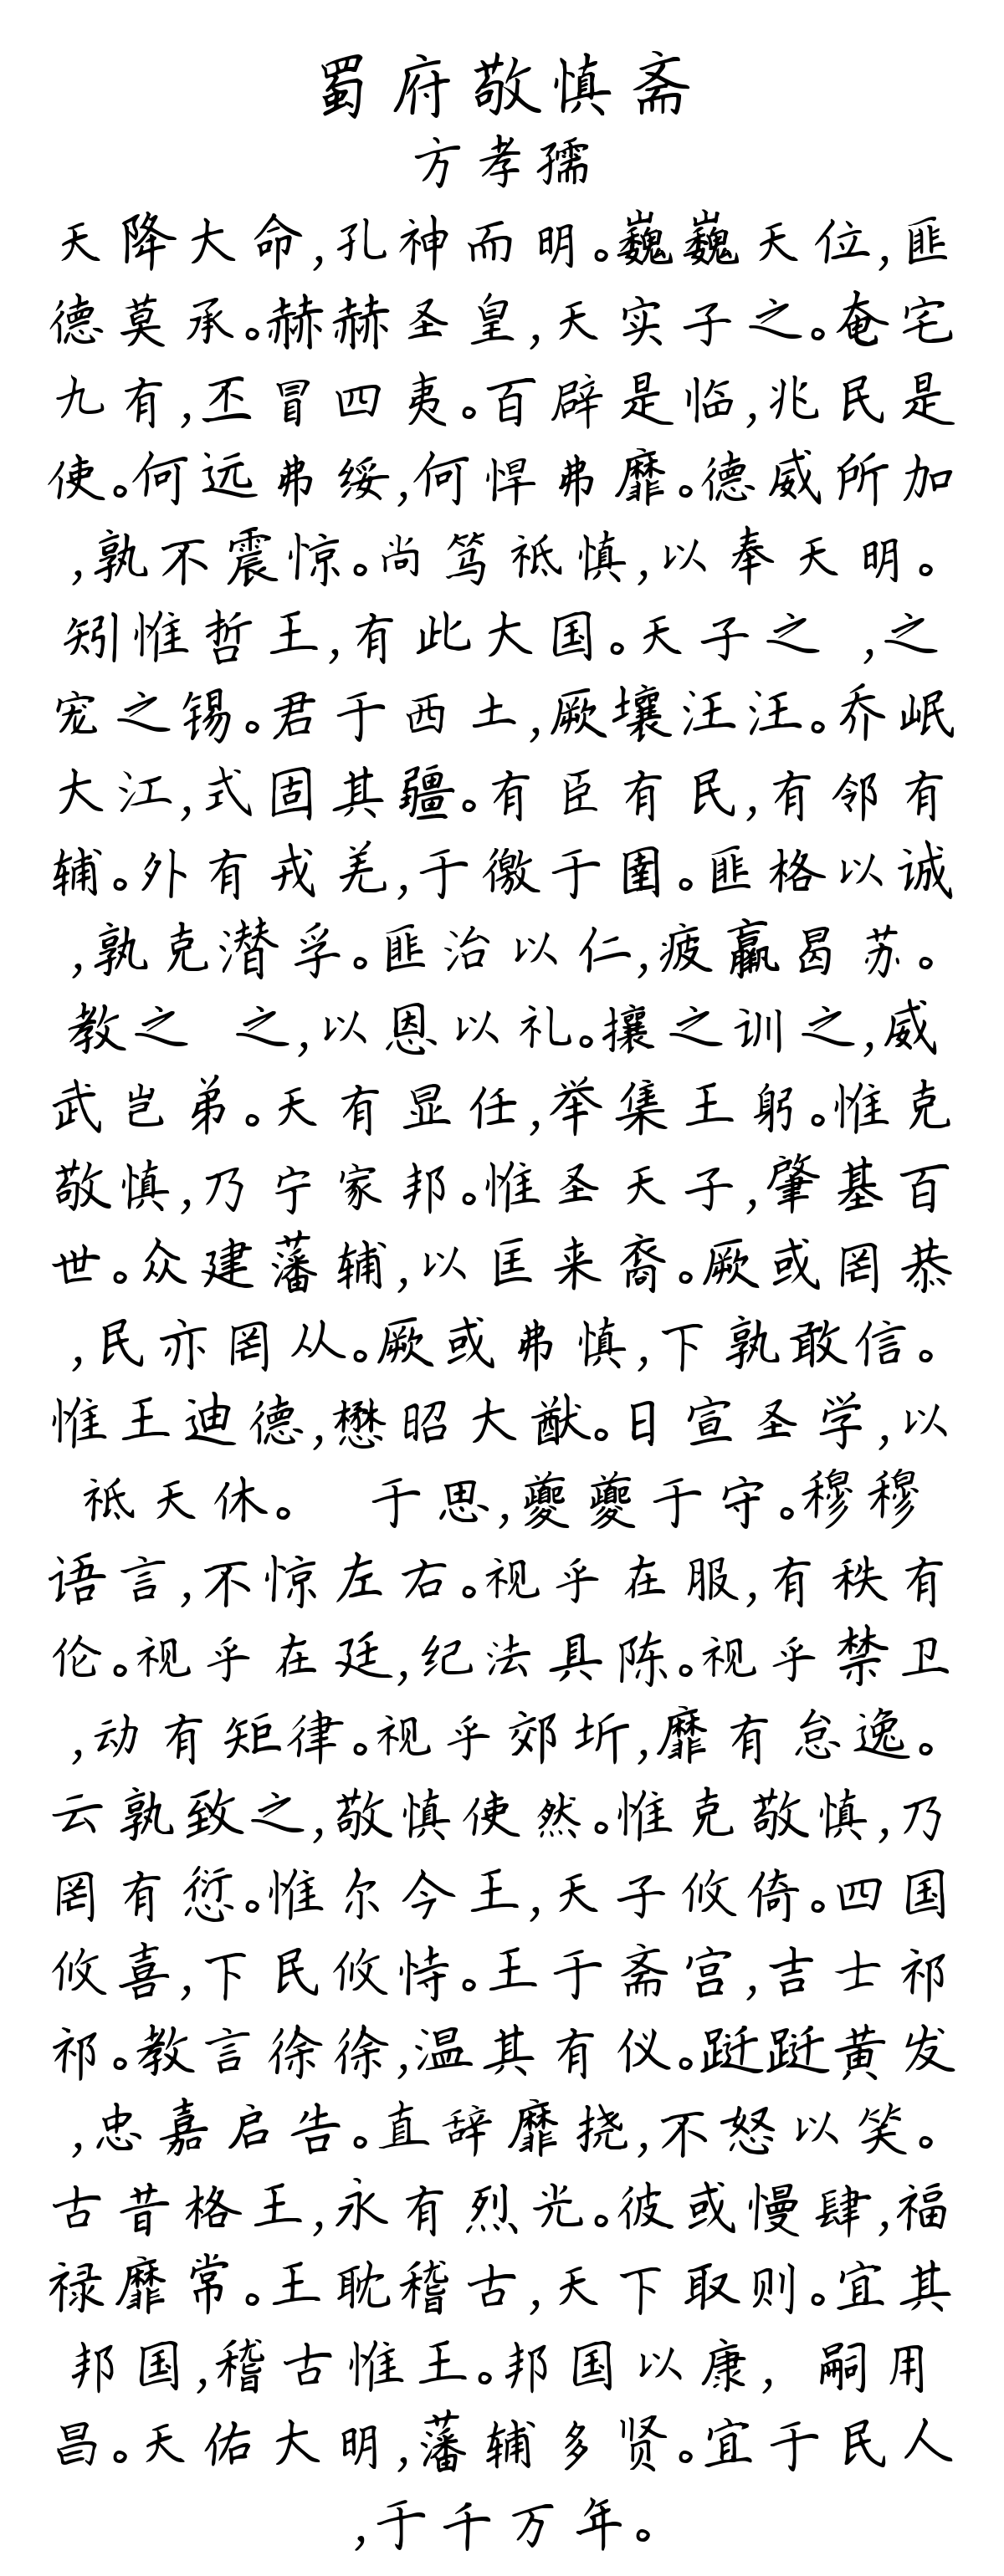 蜀府敬慎斋
方孝孺
天降大命,孔神而明。巍巍天位,匪
德莫承。赫赫圣皇,天实子之。奄宅
九有,丕冒四夷。百辟是临,兆民是
使。何远弗绥,何悍弗靡。德威所加
,孰不震惊。尚笃祗慎,以奉天明。
矧惟哲王,有此大国。天子之 ,之
宠之锡。君于西土,厥壤汪汪。乔岷
大江,式固其疆。有臣有民,有邻有
辅。外有戎羌,于徼于圉。匪格以诚
,孰克潜孚。匪治以仁,疲羸曷苏。
教之 之,以恩以礼。攘之训之,威
武岂弟。天有显任,举集王躬。惟克
敬慎,乃宁家邦。惟圣天子,肇基百
世。众建藩辅,以匡来裔。厥或罔恭
,民亦罔从。厥或弗慎,下孰敢信。
惟王迪德,懋昭大猷。日宣圣学,以
祗天休。 于思,夔夔于守。穆穆
语言,不惊左右。视乎在服,有秩有
伦。视乎在廷,纪法具陈。视乎禁卫
,动有矩律。视乎郊圻,靡有怠逸。
云孰致之,敬慎使然。惟克敬慎,乃
罔有愆。惟尔今王,天子攸倚。四国
攸喜,下民攸恃。王于斋宫,吉士祁
祁。教言徐徐,温其有仪。跹跹黄发
,忠嘉启告。直辞靡挠,不怒以笑。
古昔格王,永有烈光。彼或慢肆,福
禄靡常。王耽稽古,天下取则。宜其
邦国,稽古惟王。邦国以康, 嗣用
昌。天佑大明,藩辅多贤。宜于民人
,于千万年。